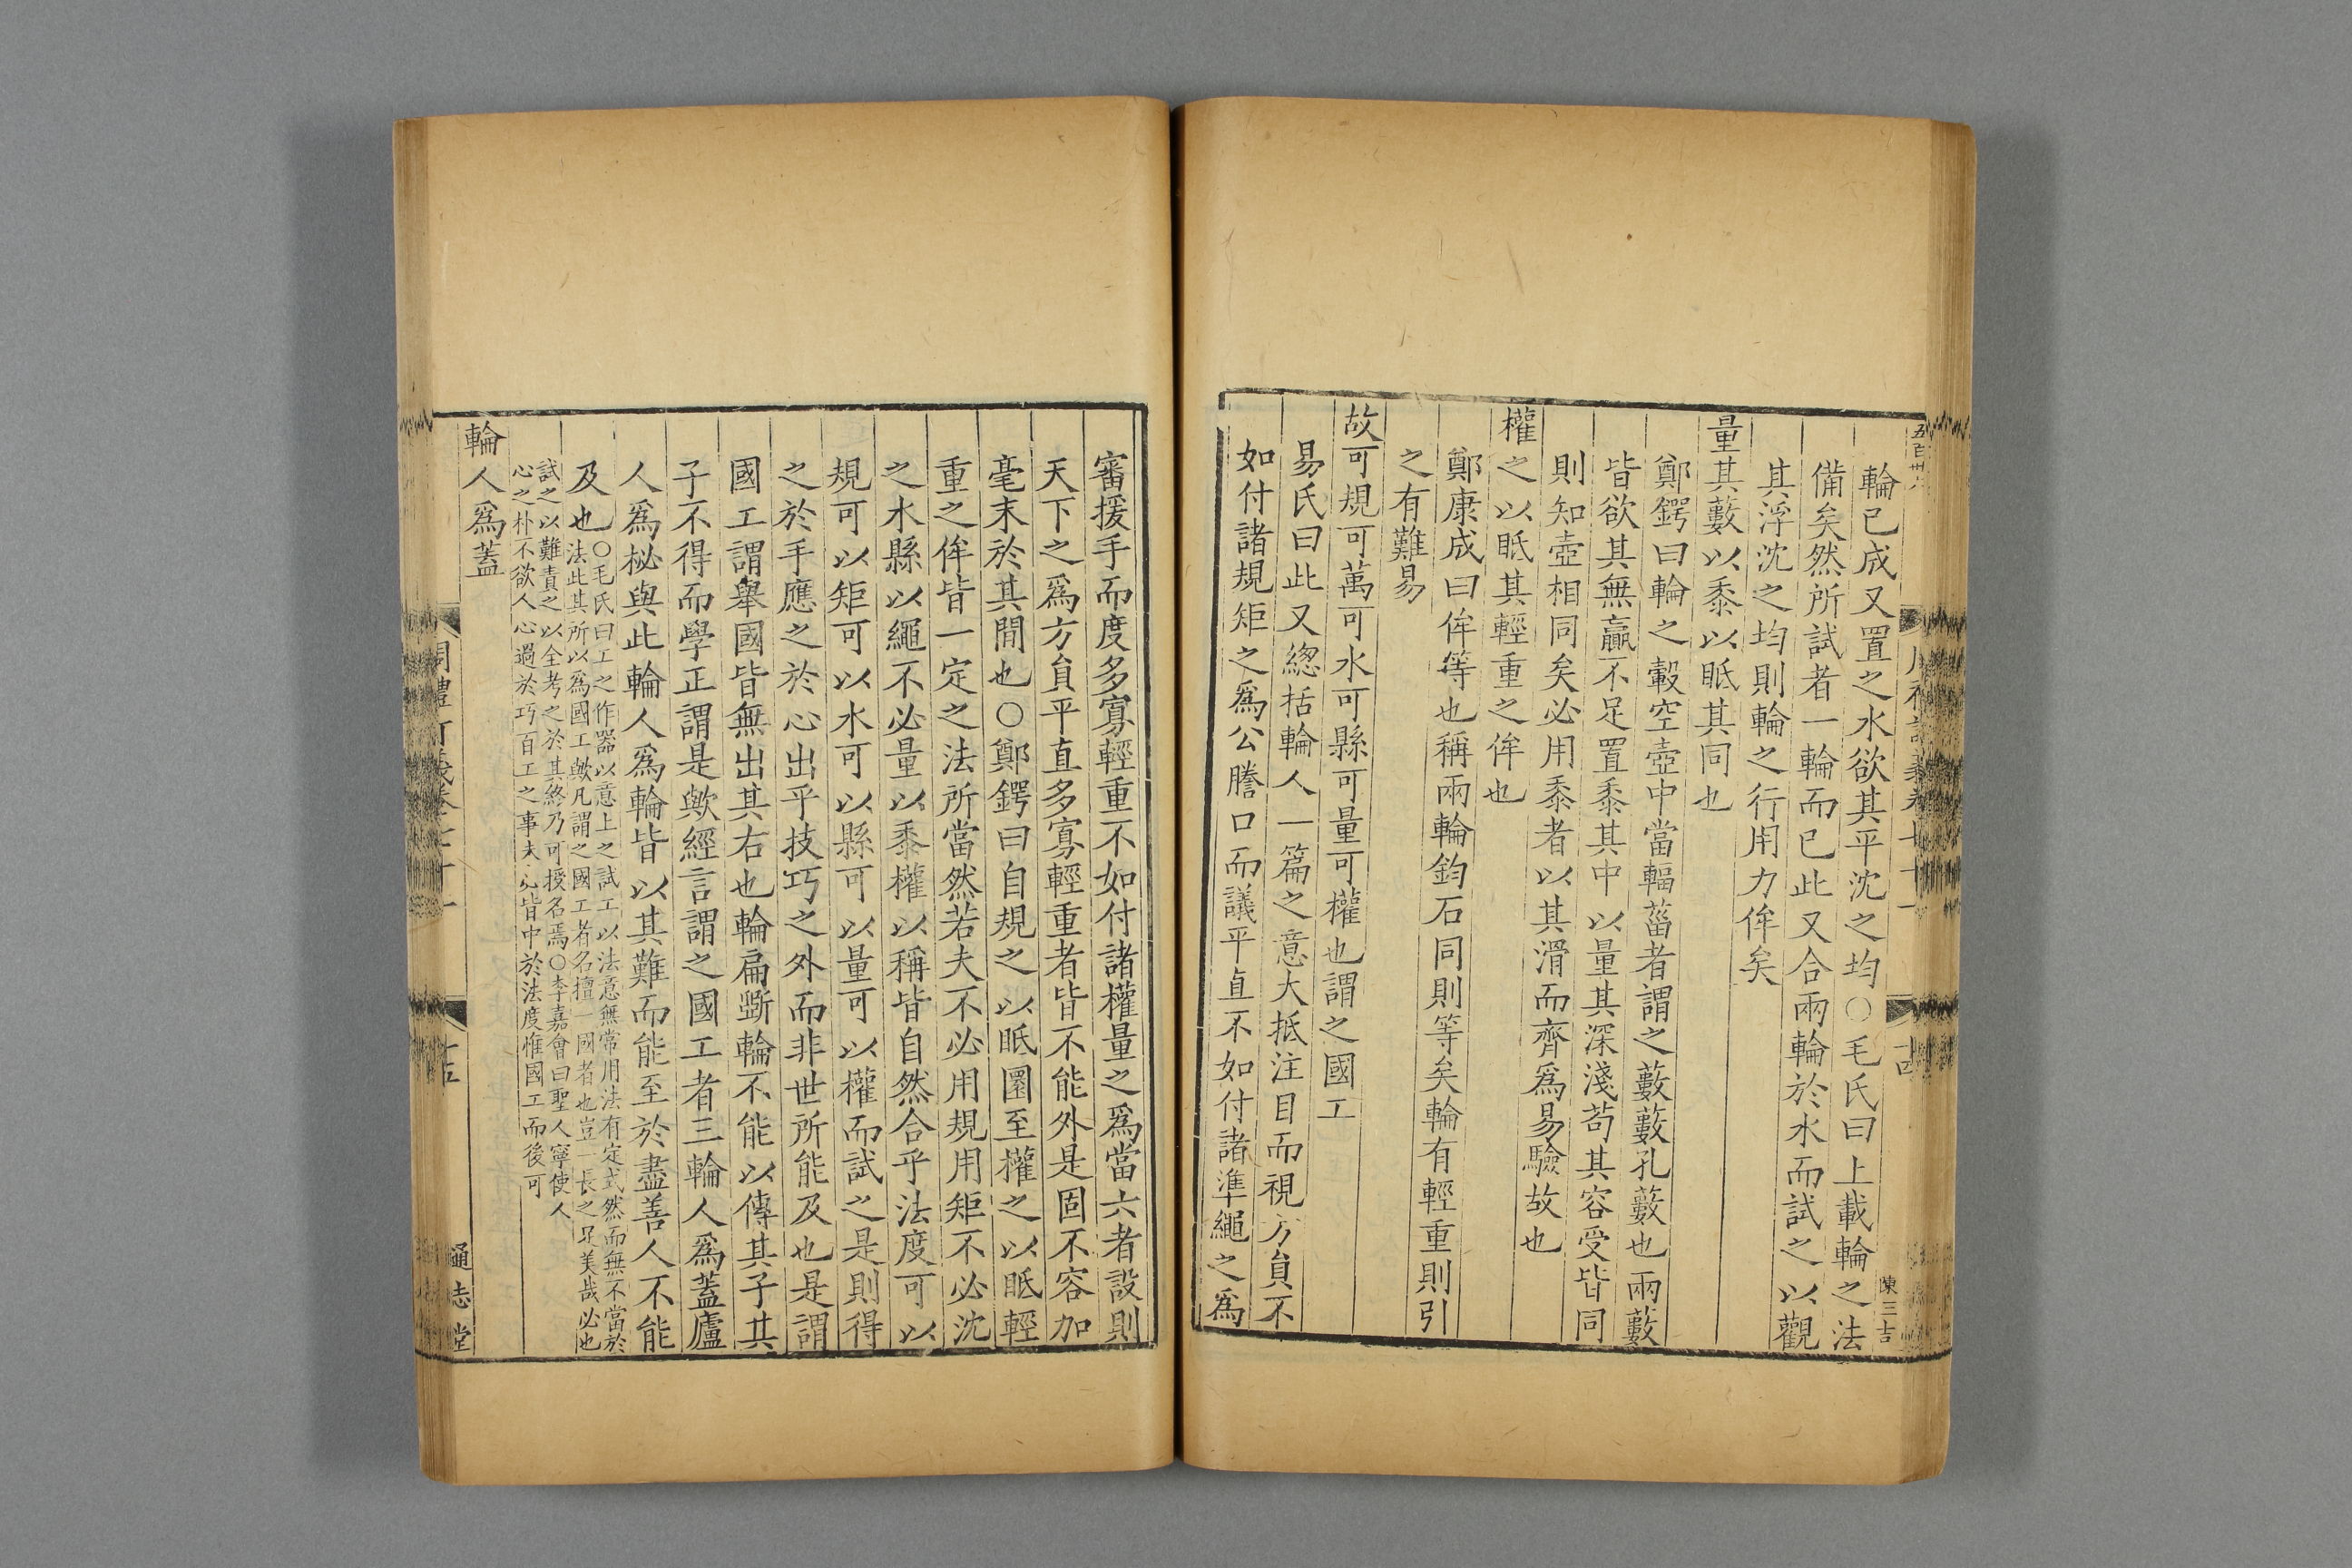 五百卅八
輪已成又置之水欲其平沈之均○毛氏曰上載輪之法
備矣然所試者一輪而已此又合兩輪於水而試之以觀
其浮沈之均則輪之行用力侔矣
量其藪以黍以眡其同也
鄭鍔曰輪之轂空壺中當輻菑者謂之藪藪孔藪也兩藪
皆欲其無羸不足置黍其中以量其深淺苟其容受皆同
則知壺相同矣必用黍者以其滑而齊為易驗故也
權之以眡其輕重之侔也
鄭康成曰侔等也稱兩輪鈞石同則等矣輪有輕重則引
之有難易
故可規可萬可水可縣可量可權也謂之國工
易氏曰此又總括輪人一篇之意大抵注目而視方員不
如付諸規矩之為公謄口而議平直不如付諸準繩之為
陳三吉
審援手而度多寡輕重不如付諸權量之為當六者設則
天下之為方員平直多寡輕重者皆不能外是固不容加
毫末於其間也○鄭鍔曰自規之以眡圜至權之以眡輕
重之侔皆一定之法所當然若夫不必用規用矩不必沈
之水縣以繩不必量以黍權以稱皆自然合乎法度可以
規可以矩可以水可以縣可以量可以權而試之是則得
之於手應之於心出乎技巧之外而非世所能及也是謂
國工謂舉國皆無出其右也輪扁斲輪不能以傳其子其
子不得而學正謂是歟經言謂之國工者三輪人為蓋廬
人為柲與此輪人為輪皆以其難而能至於盡善人不能
及也○毛氏曰工之作器以意上之試工以法意無常用法有定式然而無不當於
法此其所以為國工歟凡謂之國工者名擅一國者也豈一長之足美哉必也
試之以難責之以全考之於其終乃可授名焉○李嘉會曰聖人寧使人
心之朴不欲人心過於巧百工之事夫必皆中於法度惟國工而後可
輪人為蓋
通志堂